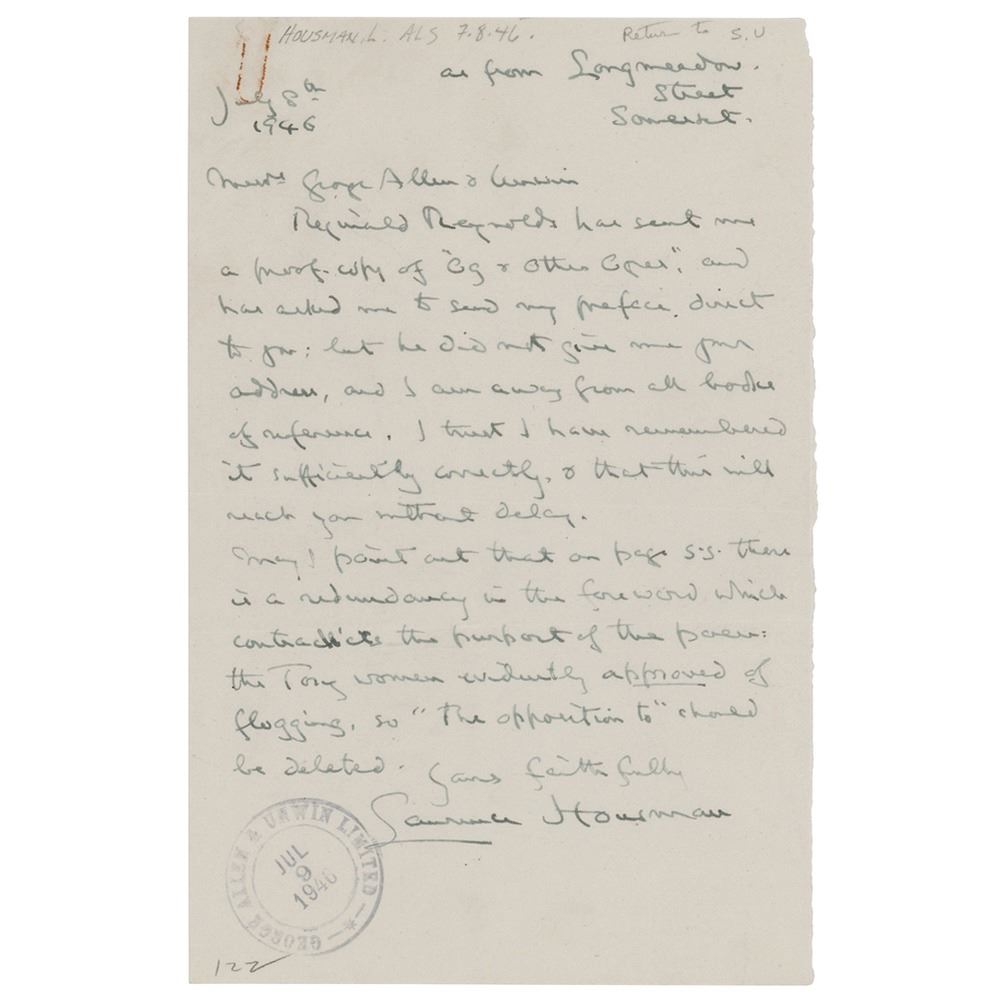 HOUSMAN, L. ALS 7.8.46.
Return to S.U
as from Longmeadow.
Street
Somerset.
July 8th
1946
Messrs George Allen & Unwin
Reginald Reynolds has sent me
a proof-copy of "Og & Other Ogres", and
has asked me to send my preface direct
to you; but he did not give me your
address, and I am away from all books
of reference. I trust I have remembered
it sufficiently correctly, & that this will
reach you without delay.
May I point out that on page 55 there
is a redundancy in the foreword which
contradicts the purport of the poem:
the Tory women evidently approved of
flogging, so "the opposition to" should
be deleted.
Yours faithfully
Laurence Housman
GEORGE ALLEN & UNWIN LIMITED
JUL
9
1946
122